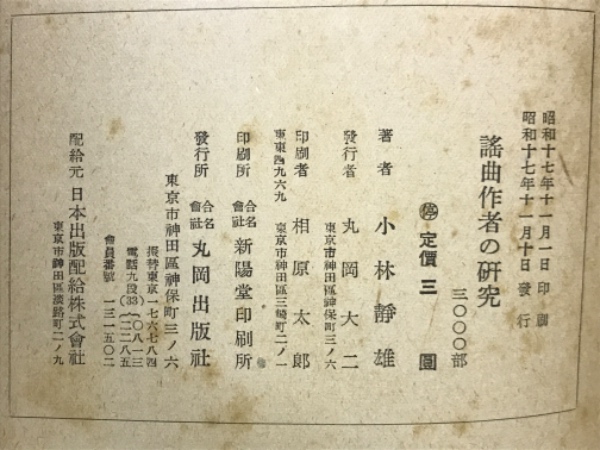 昭和十七年十一月一日印刷
昭和十七年十一月十日發行
謠曲作者の研究
三〇〇〇部
㊡定價三圓
著者 小林靜雄
東京市神田區神保町三ノ六
發行者 丸岡大二
東京市神田區三崎町二ノ一
印刷者 相原太郎
東東四九六九
印刷所 合名會社 新陽堂印刷所
發行所 合名會社 丸岡出版社
東京市神田區神保町三ノ六
振替東京一七六七八四
電話九段(33)〇八一三
二二八五
會員番號 一三一五〇二
配給元 日本出版配給株式會社
東京市神田區淡路町二ノ九